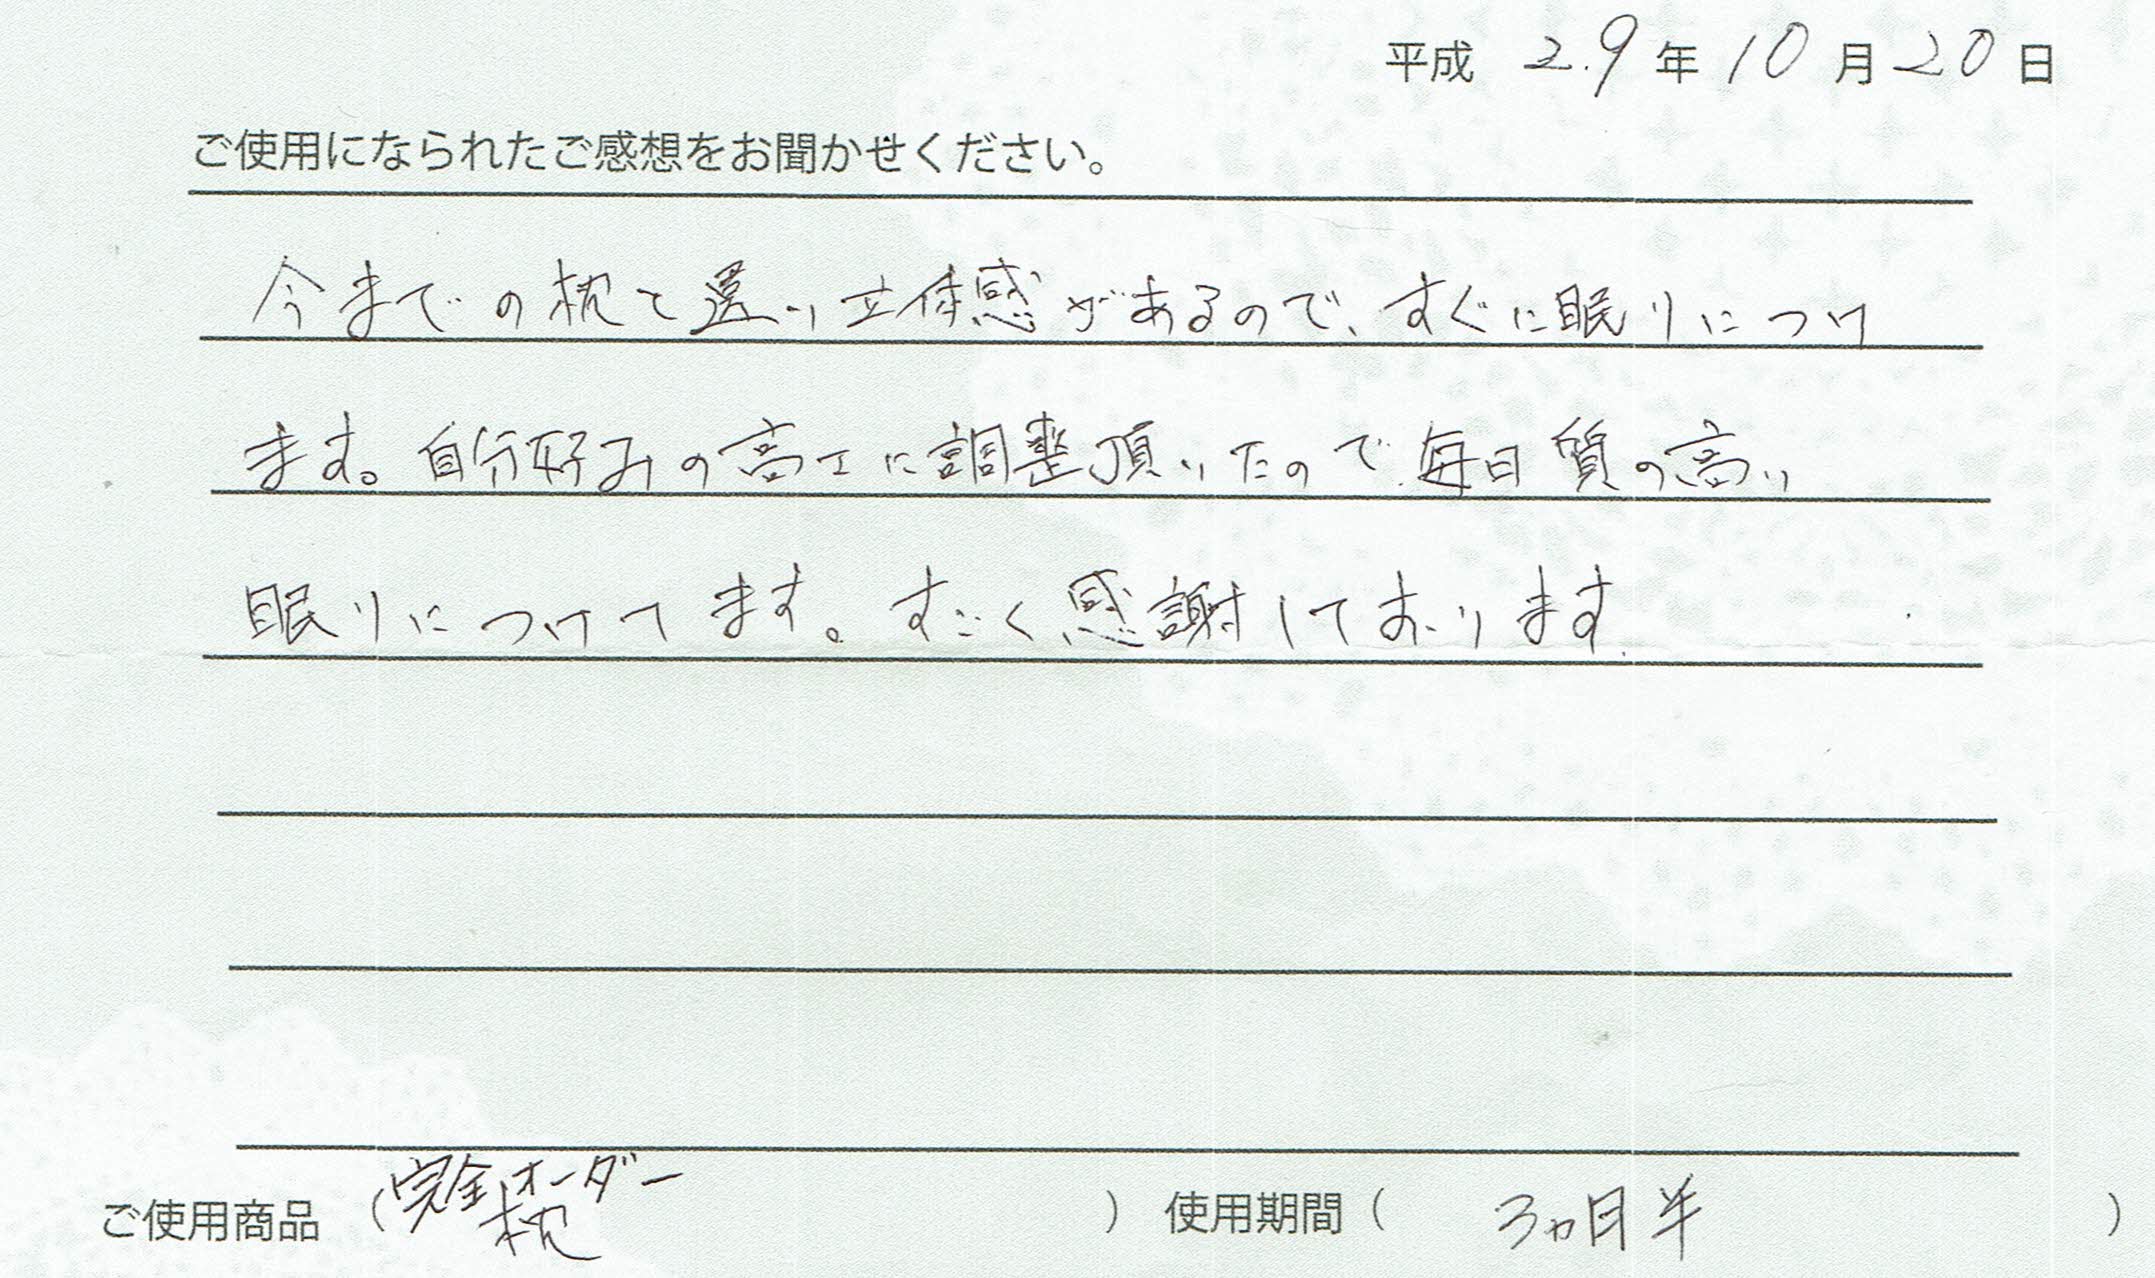 平成 29年10月20日
ご使用になられたご感想をお聞かせください。
今までの枕と違い立体感があるので、すぐに眠りにつけ
ます。自分好みの高さに調整頂いたので毎日質の高い
眠りにつけてます。すごく感謝しております
ご使用商品 (完全オーダー枕) 使用期間( 3ヵ月半 )